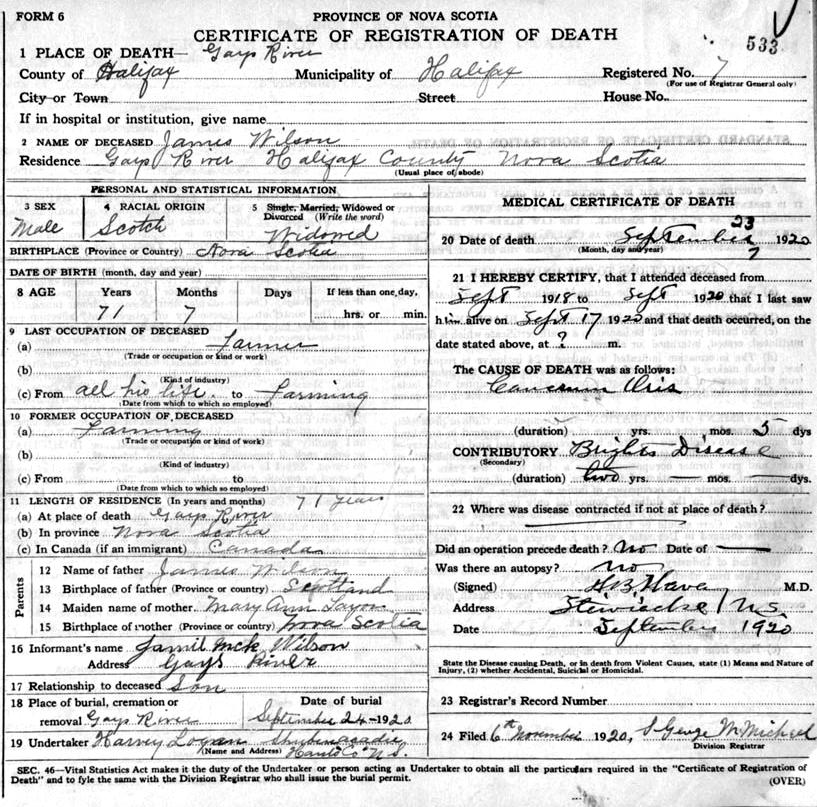 FORM 6
PROVINCE OF NOVA SCOTIA
CERTIFICATE OF REGISTRATION OF DEATH
533
1 PLACE OF DEATH— Gays River
County of Halifax Municipality of Halifax Registered No. 7
(For use of Registrar General only)
City or Town Street House No.
If in hospital or institution, give name
2 NAME OF DECEASED James Wilson
Residence Gays River Halifax County Nova Scotia
(Usual place of abode)
PERSONAL AND STATISTICAL INFORMATION
3 SEX Male
4 RACIAL ORIGIN Scotch
5 Single, Married, Widowed or Divorced (Write the word) Widowed
BIRTHPLACE (Province or Country) Nova Scotia
DATE OF BIRTH (month, day and year)
8 AGE Years Months Days If less than one day,
71 7 hrs. or min.
9 LAST OCCUPATION OF DECEASED
(a) Farmer
(Trade or occupation or kind or work)
(b)
(Kind of industry)
(c) From all his life to Farming
(Date from which to which so employed)
10 FORMER OCCUPATION OF DECEASED
(a) Farming
(Trade or occupation or kind of work)
(b)
(Kind of industry)
(c) From to
(Date from which to which so employed)
11 LENGTH OF RESIDENCE (In years and months) 71 years
(a) At place of death Gays River
(b) In province Nova Scotia
(c) In Canada (if an immigrant) Canada
Parents
12 Name of father James Wilson
13 Birthplace of father (Province or country) Scotland
14 Maiden name of mother Mary Ann
15 Birthplace of mother (Province or country) Nova Scotia
16 Informant's name McK Wilson
Address Gays River
17 Relationship to deceased Son
18 Place of burial, cremation or Date of burial
removal Gays River September 24-1920
19 Undertaker Harvey Logan Shubenacadie
(Name and Address) Hants Co N.S.
MEDICAL CERTIFICATE OF DEATH
20 Date of death September 23 1920
(Month, day and year) ?
21 I HEREBY CERTIFY, that I attended deceased from
Sept 1918 to Sept 1920 that I last saw
him alive on Sept 17 1920 and that death occurred, on the
date stated above, at ? m.
The CAUSE OF DEATH was as follows:
(duration) yrs. mos. 5 dys
CONTRIBUTORY Brights Disease
(Secondary)
(duration) two yrs. — mos. — dys.
22 Where was disease contracted if not at place of death?
Did an operation precede death? No Date of —
Was there an autopsy? no
(Signed) H.B. M.D.
Address Stewiacke N.S.
Date September 1920
State the Disease causing Death, or in death from Violent Causes, state (1) Means and Nature of
Injury, (2) whether Accidental, Suicidal or Homicidal.
23 Registrar's Record Number
24 Filed 6th November 1920, George McMichael
Division Registrar
SEC. 46—Vital Statistics Act makes it the duty of the Undertaker or person acting as Undertaker to obtain all the particulars required in the "Certificate of Registration of
Death" and to fyle the same with the Division Registrar who shall issue the burial permit.
(OVER)